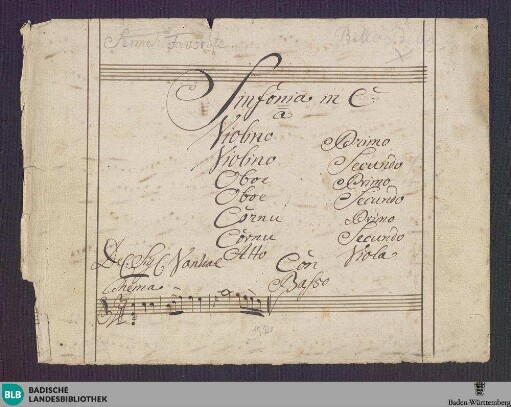 Sinfonia in C.
a
Violino Primo
Violino Secundo
Oboe Primo
Oboe Secundo
Cornu Primo
Cornu Secundo
Alto Viola
Con
Basso
Del Sig
Thema
BLB BADISCHE
LANDESBIBLIOTHEK
Baden-Württemberg